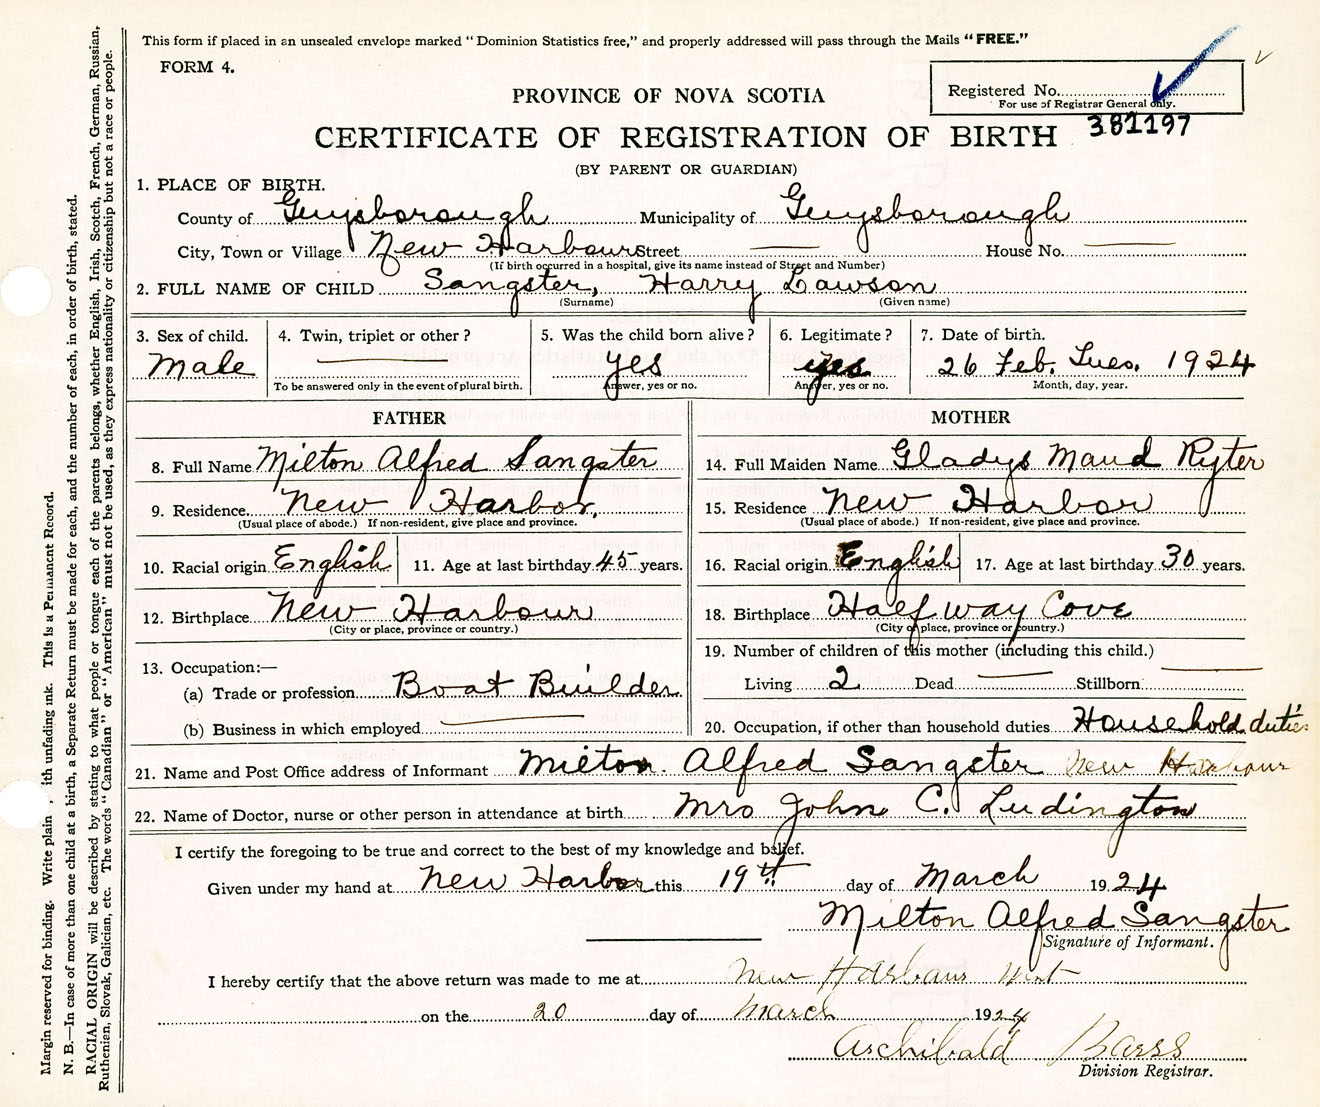 This form if placed in an unsealed envelope marked “Dominion Statistics free,” and properly addressed will pass through the Mails “FREE.”
FORM 4.
Registered No.
For use of Registrar General only.
381197
PROVINCE OF NOVA SCOTIA
CERTIFICATE OF REGISTRATION OF BIRTH
(BY PARENT OR GUARDIAN)
1. PLACE OF BIRTH.
County of Guysborough Municipality of Guysborough
City, Town or Village New Harbour Street — House No. —
(If birth occurred in a hospital, give its name instead of Street and Number)
2. FULL NAME OF CHILD Sangster, Harry Lawson
(Surname) (Given name)
3. Sex of child. 4. Twin, triplet or other? 5. Was the child born alive? 6. Legitimate? 7. Date of birth.
Male — Yes yes 26 Feb. Tues. 1924
To be answered only in the event of plural birth. Answer, yes or no. Answer, yes or no. Month, day, year.
FATHER
8. Full Name Milton Alfred Sangster
9. Residence New Harbor.
(Usual place of abode.) If non-resident, give place and province.
10. Racial origin English 11. Age at last birthday 45 years.
12. Birthplace New Harbour
(City or place, province or country.)
13. Occupation:—
(a) Trade or profession Boat Builder
(b) Business in which employed —
MOTHER
14. Full Maiden Name Gladys Maud Ryter
15. Residence New Harbor
(Usual place of abode.) If non-resident, give place and province.
16. Racial origin English 17. Age at last birthday 30 years.
18. Birthplace Half way Cove
(City or place, province or country.)
19. Number of children of this mother (including this child.)
Living 2 Dead — Stillborn —
20. Occupation, if other than household duties Household duties
21. Name and Post Office address of Informant Milton Alfred Sangster New Harbour
22. Name of Doctor, nurse or other person in attendance at birth Mrs John C. Ludington
I certify the foregoing to be true and correct to the best of my knowledge and belief.
Given under my hand at New Harbor this 19th day of March 1924
Milton Alfred Sangster
Signature of Informant.
I hereby certify that the above return was made to me at New Harbour West
on the 20 day of March 1924
Archibald Barss
Division Registrar.
Margin reserved for binding. Write plain , ith unfading ink. This is a Permanent Record.
N. B.—In case of more than one child at a birth, a Separate Return must be made for each, and the number of each, in order of birth, stated.
RACIAL ORIGIN will be described by stating to what people or tongue each of the parents belongs, whether English, Irish, Scotch, French, German, Russian,
Ruthenian, Slovak, Galician, etc. The words “Canadian” or “American” must not be used, as they express nationality or citizenship but not a race or people.